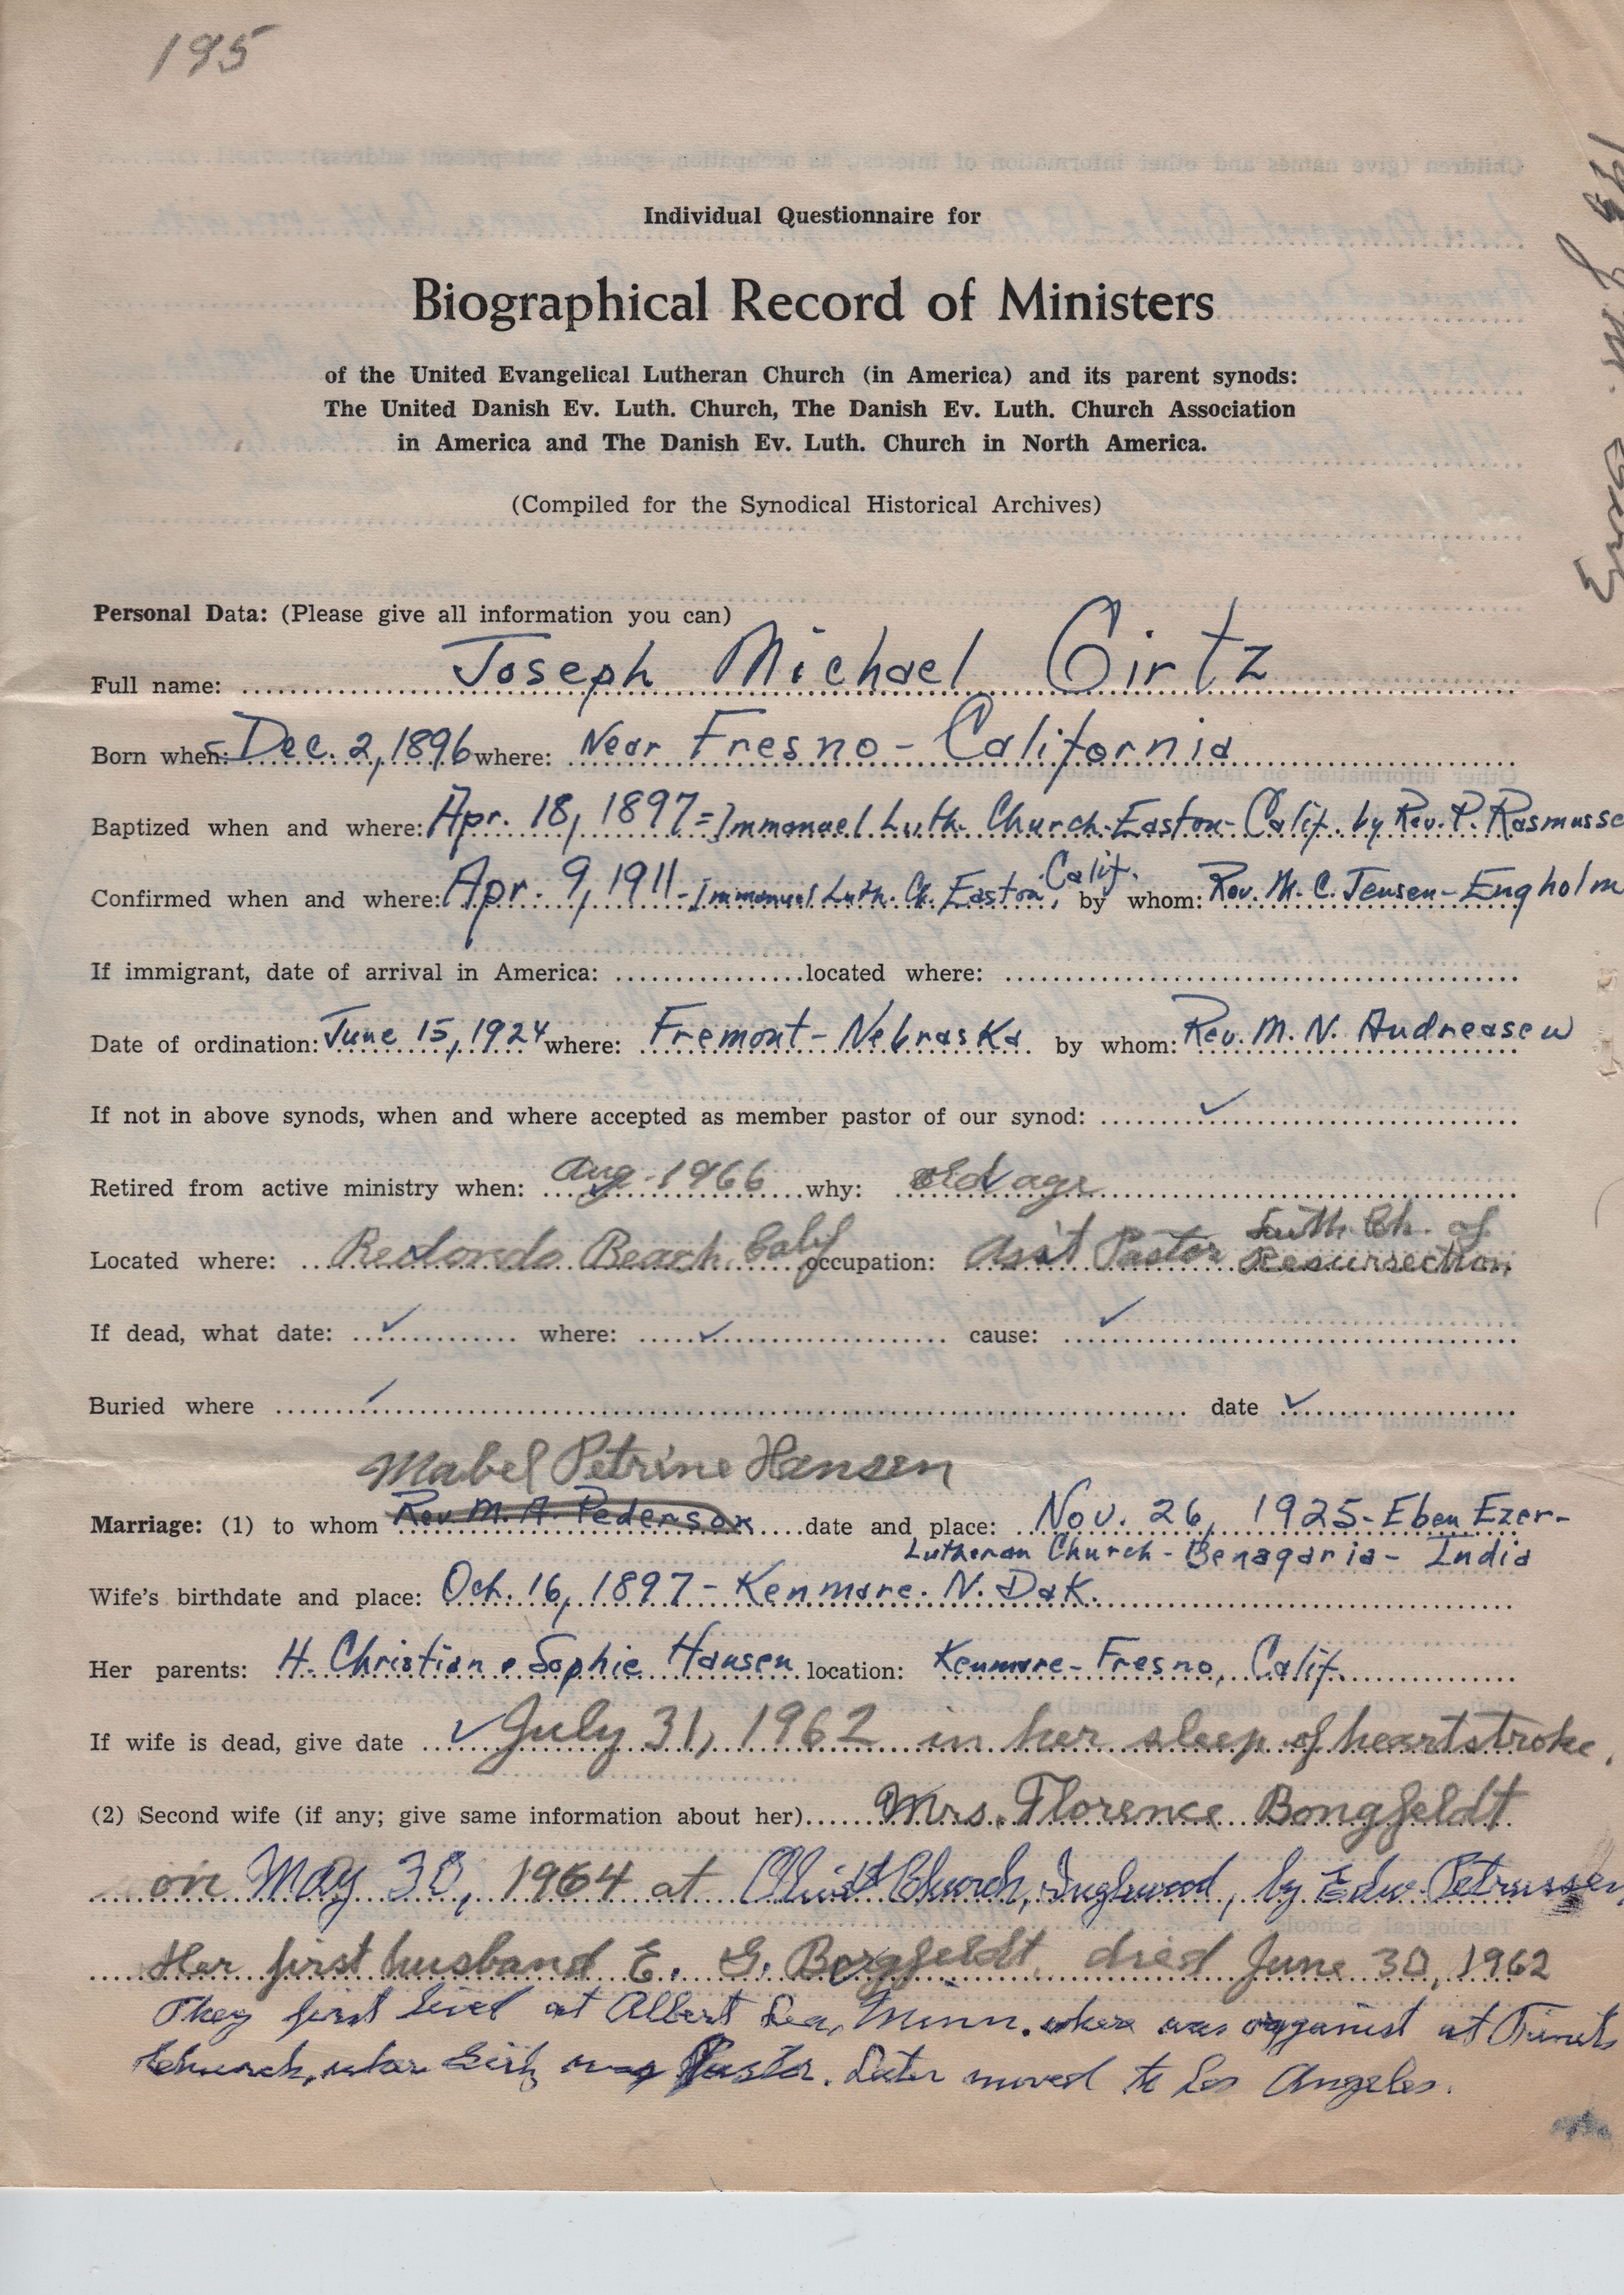 195
Individual Questionnaire for
Biographical Record of Ministers
of the United Evangelical Lutheran Church (in America) and its parent synods:
The United Danish Ev. Luth. Church, The Danish Ev. Luth. Church Association
in America and The Danish Ev. Luth. Church in North America.
(Compiled for the Synodical Historical Archives)
Personal Data: (Please give all information you can)
Full name: Joseph Michael Girtz
Born when: Dec. 2, 1896 where: Near Fresno - California
Baptized when and where: Apr. 18, 1897 = Immanuel Luth. Church - Easton - Calif. by Rev. P. Rasmusse
Confirmed when and where: Apr. 9, 1911 - Immanuel Luth. Ch. Easton, Calif. by whom: Rev. M. C. Jensen-Engholm
If immigrant, date of arrival in America: located where:
Date of ordination: June 15, 1924 where: Fremont - Nebraska by whom: Rev. M. N. Andreasen
If not in above synods, when and where accepted as member pastor of our synod: ✓
Retired from active ministry when: Aug - 1966 why: old age
Located where: Redondo Beach Calif occupation: Ass't Pastor Luth. Ch. of Resurrection
If dead, what date: ✓ where: ✓ cause: ✓
Buried where ✓ date ✓
Mabel Petrine Hansen
Marriage: (1) to whom Rev M. A. Pederson date and place: Nov. 26, 1925 - Eben Ezer-
Lutheran Church - Benagaria - India
Wife's birthdate and place: Oct. 16, 1897 - Kenmare. N. Dak.
Her parents: H. Christian & Sophie Hansen location: Kenmare - Fresno, Calif.
If wife is dead, give date ✓ July 31, 1962 in her sleep of heartstroke.
(2) Second wife (if any; give same information about her) Mrs. Florence Bongfeldt
on May 30, 1964 at Christ Church, Inglewood, by Edw. Petrussen
Her first husband E. G. Borgfeldt, died June 30, 1962
They first lived at Albert Lea, Minn. where was organist at Trinity
Church, where Girtz was Pastor. Later moved to Los Angeles.